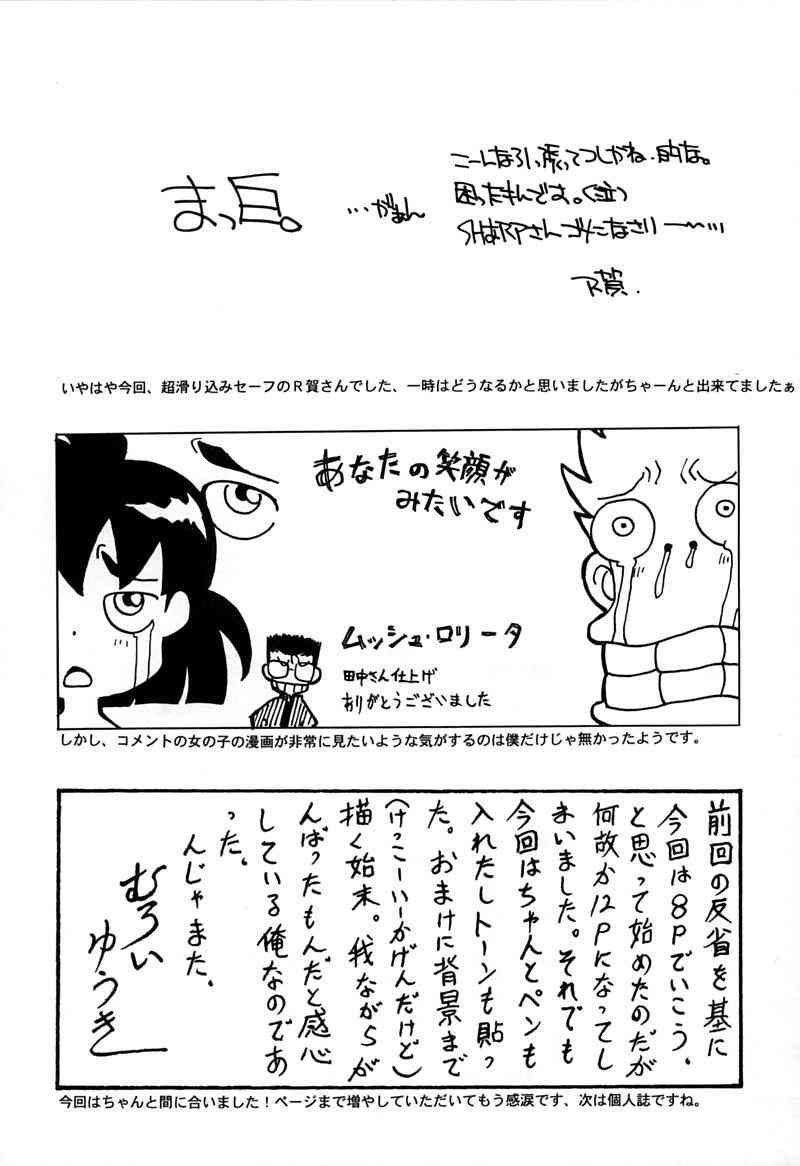 まっ白。
…がぁん
こーんなひっ張ってつしかね、的な。
困ったもんです。(泣)
SHARPさんゴメンなさいー〜…
R賀.
いやはや今回、超滑り込みセーフのR賀さんでした、一時はどうなるかと思いましたがちゃーんと出来てましたぁ
あなたの笑顔が
みたいです
ムッシュ・ロリータ
田中さん仕上げ
ありがとうございました
しかし、コメントの女の子の漫画が非常に見たいような気がするのは僕だけじゃ無かったようです。
前回の反省を基に
今回は8Pでいこう、
と思って始めたのだが
何故か12Pになってし
まいました。それでも
今回はちゃんとペンも
入れたしトーンも貼っ
た。おまけに背景まで
(けっこーいーかげんだけど)
描く始末。我ながらが
んばったもんだと感心
している俺なのであ
った。
んじゃまた、
むろい
ゆうき
今回はちゃんと間に合いました！ページまで増やしていただいてもう感涙です、次は個人誌ですね。